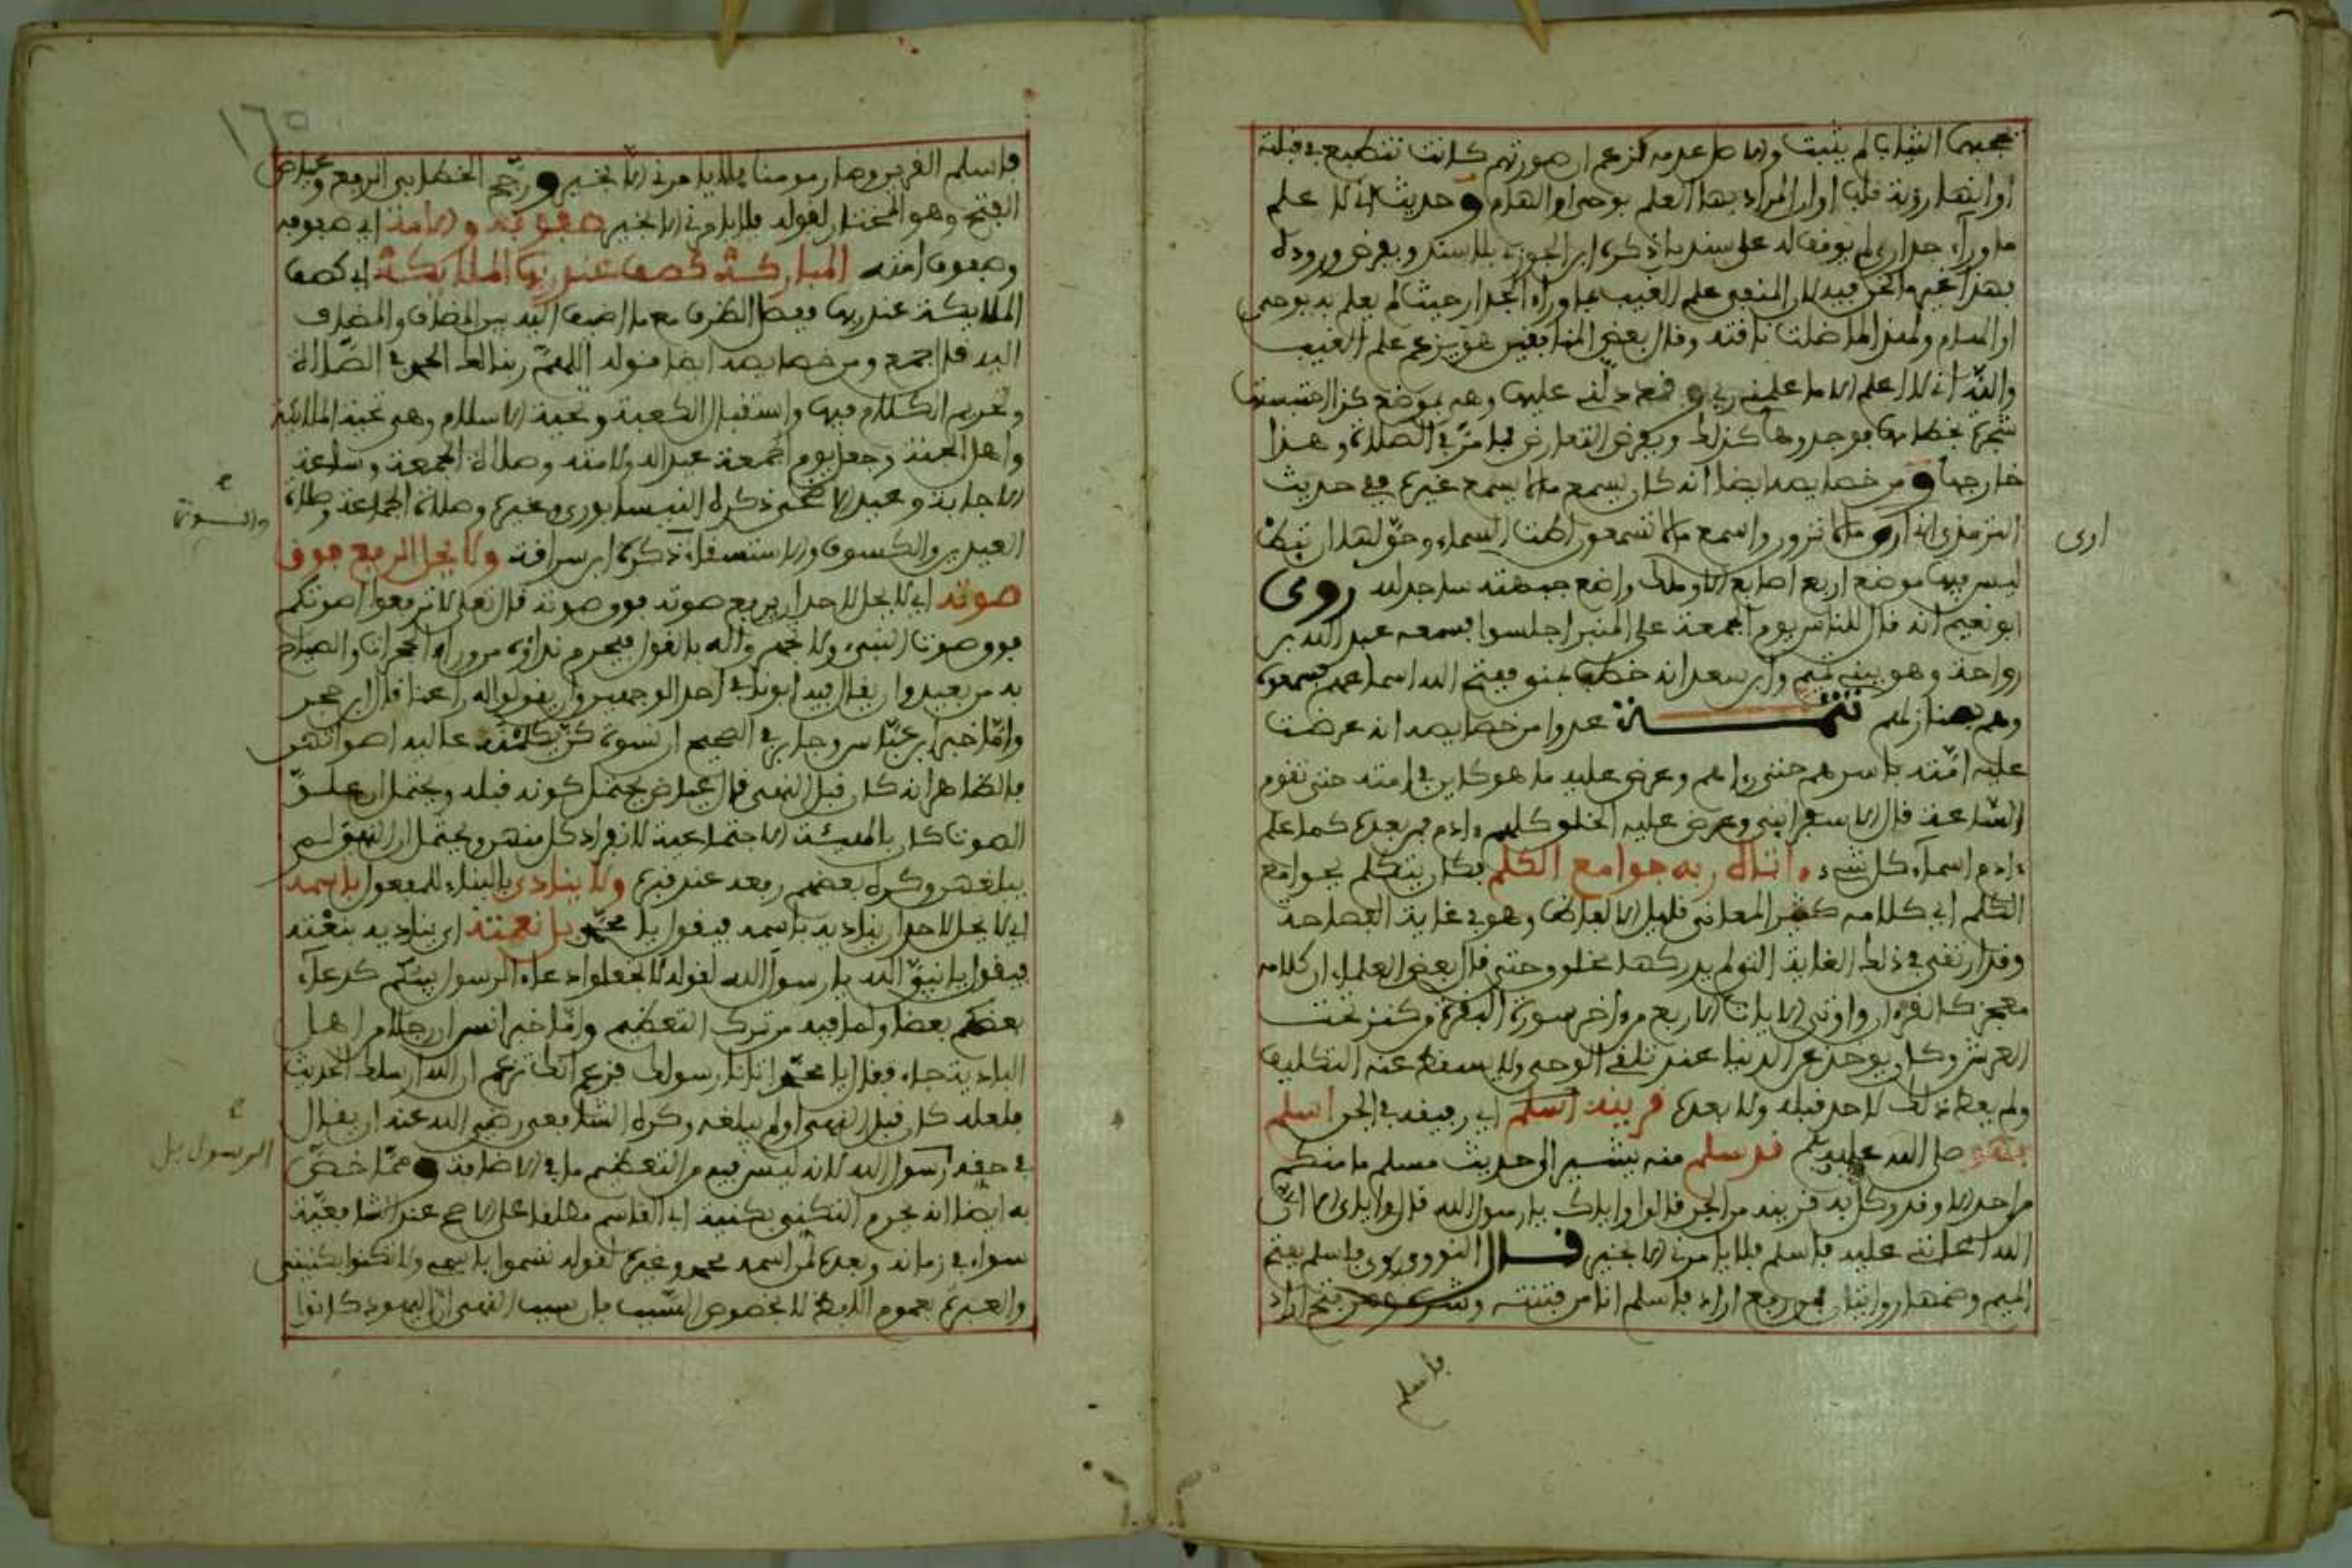 تحجبها الثياب لم يثبت والاصل عدمه كزعم ان صورتهم كانت تنطبع في قبلته
او انها رؤية قلب او ان المراد بها العلم بوحي او الهام وحديث اني لا اعلم
ما وراء جداري لم يوقف له على سند بل ذكره ابن الجوزي بلا سند وبفرض وروده
فهذا غير ما نحن فيه لان المنفي علم الغيب بما وراء الجدار حيث لم يعلم به بوحي
او الهام ولهذا لما ضلت ناقته وقال بعض المنافقين هو يزعم علم الغيب
والله اني لا اعلم الا ما علمني ربي وقد دلني عليها وهي بموضع كذا حبستها
شجرة بخطامها فوجدوها كذلك وبفرض التعارض فما مر في الصلاة وهذا
خارجها ومن خصايصه ايضا انه كان يسمع ما لا يسمع غيره ففي حديث
الترمذي اني ارى ما لا ترون واسمع ما لا تسمعون اطت السماء وحق لها ان تئط
ليس فيها موضع اربع اصابع الا وملك واضع جبهته ساجد لله روى
ابو نعيم انه قال للناس يوم الجمعة على المنبر اجلسوا فسمعه عبد الله بن
رواحة وهو ببني تميم وابن سعد انه خطب بمنى ففتح الله اسماعهم فسمعوه
وهم بمنازلهم تتمة عدوا من خصايصه انه عرضت
عليه امته باسرهم حتى راهم وعرض عليه ما هو كاين في امته حتى تقوم
الساعة قال الاسفرايني وعرض عليه الخلق كلهم ءادم فمن بعده كما علم
ءادم اسماء كل شيء وءاتاه ربه جوامع الكلم فكان يتكلم بجوامع
الكلم اي كلامه كثير المعاني قليل الالفاظ وهو في غاية الفصاحة
وقد ارتقى في ذلك الغاية التي لم يدركها مخلوق حتى قال بعض العلماء ان كلامه
معجز كالقرءان واوتي الايات الاربع من ءاخر سورة البقرة من كنز تحت
العرش وكان يوخذ عن الدنيا عند تلقي الوحي ولا يسقط عنه التكليف
ولم يعط ذلك لاحد قبله ولا بعده قرينه اسلم اي رفيقه في الجن اسلم
فهو صلى الله عليه وسلم قد سلم منه يشير الى حديث مسلم ما منكم
من احد الا وقد وكل به قرينه من الجن قالوا واياك يا رسول الله قال واياي الا ان
الله اعانني عليه فاسلم فلا يامرني الا بخير قال النووي روي فاسلم بفتح
الميم وضمها روايتان فمن رفع اراد فاسلم انا من فتنته وشره ومن فتح اراد
ارى
فاسلم
١٦٥
فاسلم القرين وصار مومنا فلا يامرني الا بخير ورجح الخطابي الرفع وعياض
الفتح وهو المختار لقوله فلا يامرني الا بخير صفوفه والامة اي صفوفه
وصفوف امته المباركة كصف عند ربها الملايكة اي كصف
الملايكة عند ربها ففصل الظرف مع ما اضيف اليه بين المضاف والمضاف
اليه قال جمع ومن خصايصه ايضا قوله اللهم ربنا لك الحمد في الصلاة
وتحريم الكلام فيها واستقبال الكعبة وتحية الاسلام وهي تحية الملائكة
واهل الجنة وجعل يوم الجمعة عيدا له ولامته وصلاة الجمعة وساعة
الاجابة وعيد الاضحى ذكره النيسابوري وغيره وصلاة الجماعة وصلاة
العيدين والكسوف والاستسقاء ذكره ابن سراقة ولا يحل الرفع فوق
صوته اي لا يحل لاحد ان يرفع صوته فوق صوته قال تعلى لا ترفعوا اصوتكم
فوق صوت النبيء ولا تجهروا له بالقول فيحرم نداؤه من وراء الحجرات والصياح
به من بعيد وان يقال فيه ابونا في احد الوجهين وان يقولوا له راعنا قال ابن حجر
واما خبر ابن عباس وجابر في الصحيح ان نسوة كن يكلمنه عالية اصواتهن
فالظاهر انه كان قبل النهي قال عياض يحتمل كونه قبله ويحتمل ان علو
الصوت كان بالهيئة الاجتماعية لا بانفراد كل منهن ويحتمل ان النهي لم
يبلغهن وكره بعضهم رفعه عند قبره ولا ينادى بالبناء للمفعول باسمه
اي لا يحل لاحد ان يناديه باسمه فيقول يا محمد بل نعته اي يناديه بنعته
فيقول يا نبي الله يا رسول الله لقوله لا تجعلوا دعاء الرسول بينكم كدعاء
بعضكم بعضا ولما فيه من ترك التعظيم واما خبر انس ان رجلا من اهل
البادية جاء فقال يا محمد اتانا رسولك فزعم انك تزعم ان الله ارسلك الحديث
فلعله كان قبل النهي او لم يبلغه وكره الشافعي رضي الله عنه ان يقال
في حقه رسول الله لانه ليس فيه من التعظيم ما في الاضافة ومما خص
به ايضا انه يحرم التكني بكنية ابي القاسم مطلقا على الاصح عند الشافعية
سواء في زمانه وبعده لمن اسمه محمد وغيره لقوله تسموا باسمي ولا تكنوا بكنيتي
والعبرة بعموم اللفظ لا بخصوص السبب فان سبب النهي ان اليهود كانوا
الرسول بل